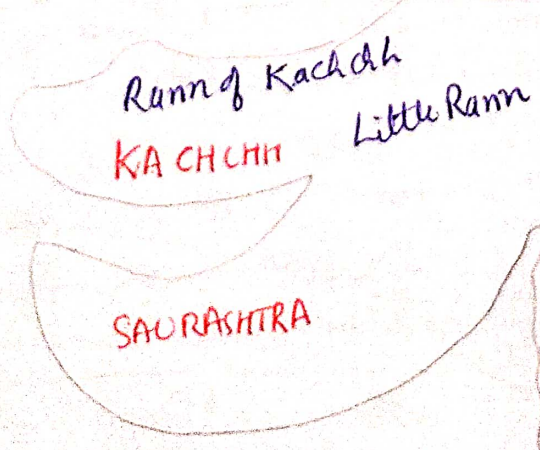 Rann of Kachchh
Little Rann
KACHCHH
SAURASHTRA